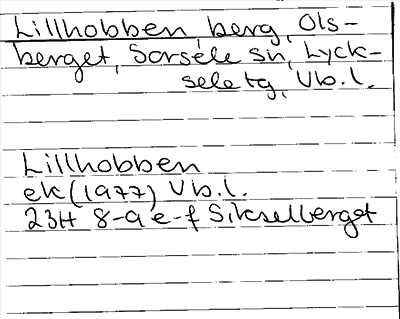 Lillhobben berg, Ols-
berget, Sorsele sn, Lyck-
sele tg, Vb.l.
Lillhobben
ek (1977) Vb.l.
23H 8-9 e-f Sikselberget